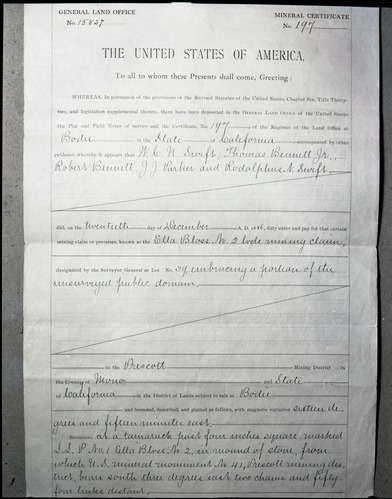 GENERAL LAND OFFICE
No. 15827
MINERAL CERTIFICATE
No. 197
THE UNITED STATES OF AMERICA,
To all to whom these Presents shall come, Greeting:
WHEREAS, In pursuance of the provisions of the Revised Statutes of the United States, Chapter Six, Title Thirty-
two, and legislation supplemental thereto, there have been deposited in the GENERAL LAND OFFICE of the United States
the Plat and Field Notes of survey and the Certificate, No. 197 of the Register of the Land Office at
Bodie in the State of California accompanied by other
evidence whereby it appears that W. C. N. Swift, Thomas Bennett Jr.,
Robert Bennett, J J Parker and Rodolphus N. Swift,
did, on the twentieth day of December A. D. 1886, duly enter and pay for that certain
mining claim or premises, known as the Ella Bloss No. 2 lode mining claim,
designated by the Surveyor General as Lot No. 39, embracing a portion of the
unsurveyed public domain,
in the Prescott Mining District, in
the County of Mono and State
of California in the District of Lands subject to sale at Bodie
and bounded, described, and platted as follows, with magnetic variation sixteen de-
grees and fifteen minutes east.
BEGINNING at a tamarack post four inches square marked
L.L. P No. 1 Ella Bloss No. 2, in mound of stone, from
which U.S. mineral monument No. 41, Prescott mining dis-
trict, bears south three degrees east, two chains and fifty
four links distant.